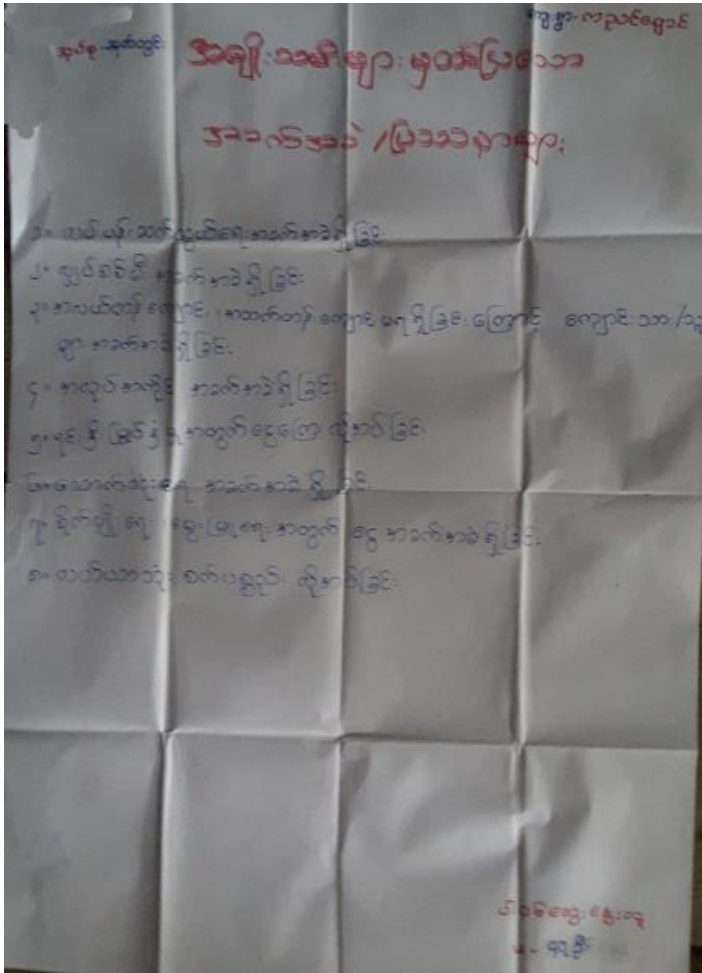 ကျေးရွာ - ကညင်ချောင်
အုပ်စု - အုတ်တွင်း
အမျိုးသမီးများမှတင်ပြသော
အခက်အခဲ / ပြဿနာများ
၁။ လမ်းပန်းဆက်သွယ်ရေးအခက်အခဲရှိခြင်း
၂။ လျှပ်စစ်မီး အခက်အခဲရှိခြင်း
၃။ အလယ်တန်းကျောင်း၊ အထက်တန်းကျောင်း မရရှိခြင်းကြောင့် ကျောင်းသား/သူ
များ အခက်အခဲရှိခြင်း
၄။ အလုပ်အကိုင် အခက်အခဲရှိခြင်း
၅။ ရင်းနှီးမြှုပ်နှံမှုအတွက် ငွေကြေး လိုအပ်ခြင်း
၆။ သောက်သုံးရေ အခက်အခဲ ရှိခြင်း
၇။ စိုက်ပျိုးရေး၊ မွေးမြူရေးအတွက် ငွေ အခက်အခဲရှိခြင်း
၈။ လယ်ယာသုံး စက်ပစ္စည်း လိုအပ်ခြင်း
ပါဝင်ဆွေးနွေးသူ
မ -